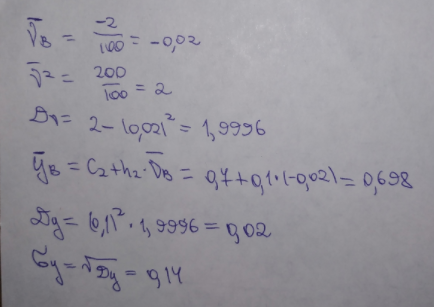 V̄в = -2/100 = -0,02
V̄² = 200/100 = 2
Dv = 2-(0,02)² = 1,9996
ȳв = C₂+h₂·V̄в = 0,7+0,1·(-0,02) = 0,698
Dy = (0,1)²·1,9996 = 0,02
σy = √Dy = 0,14